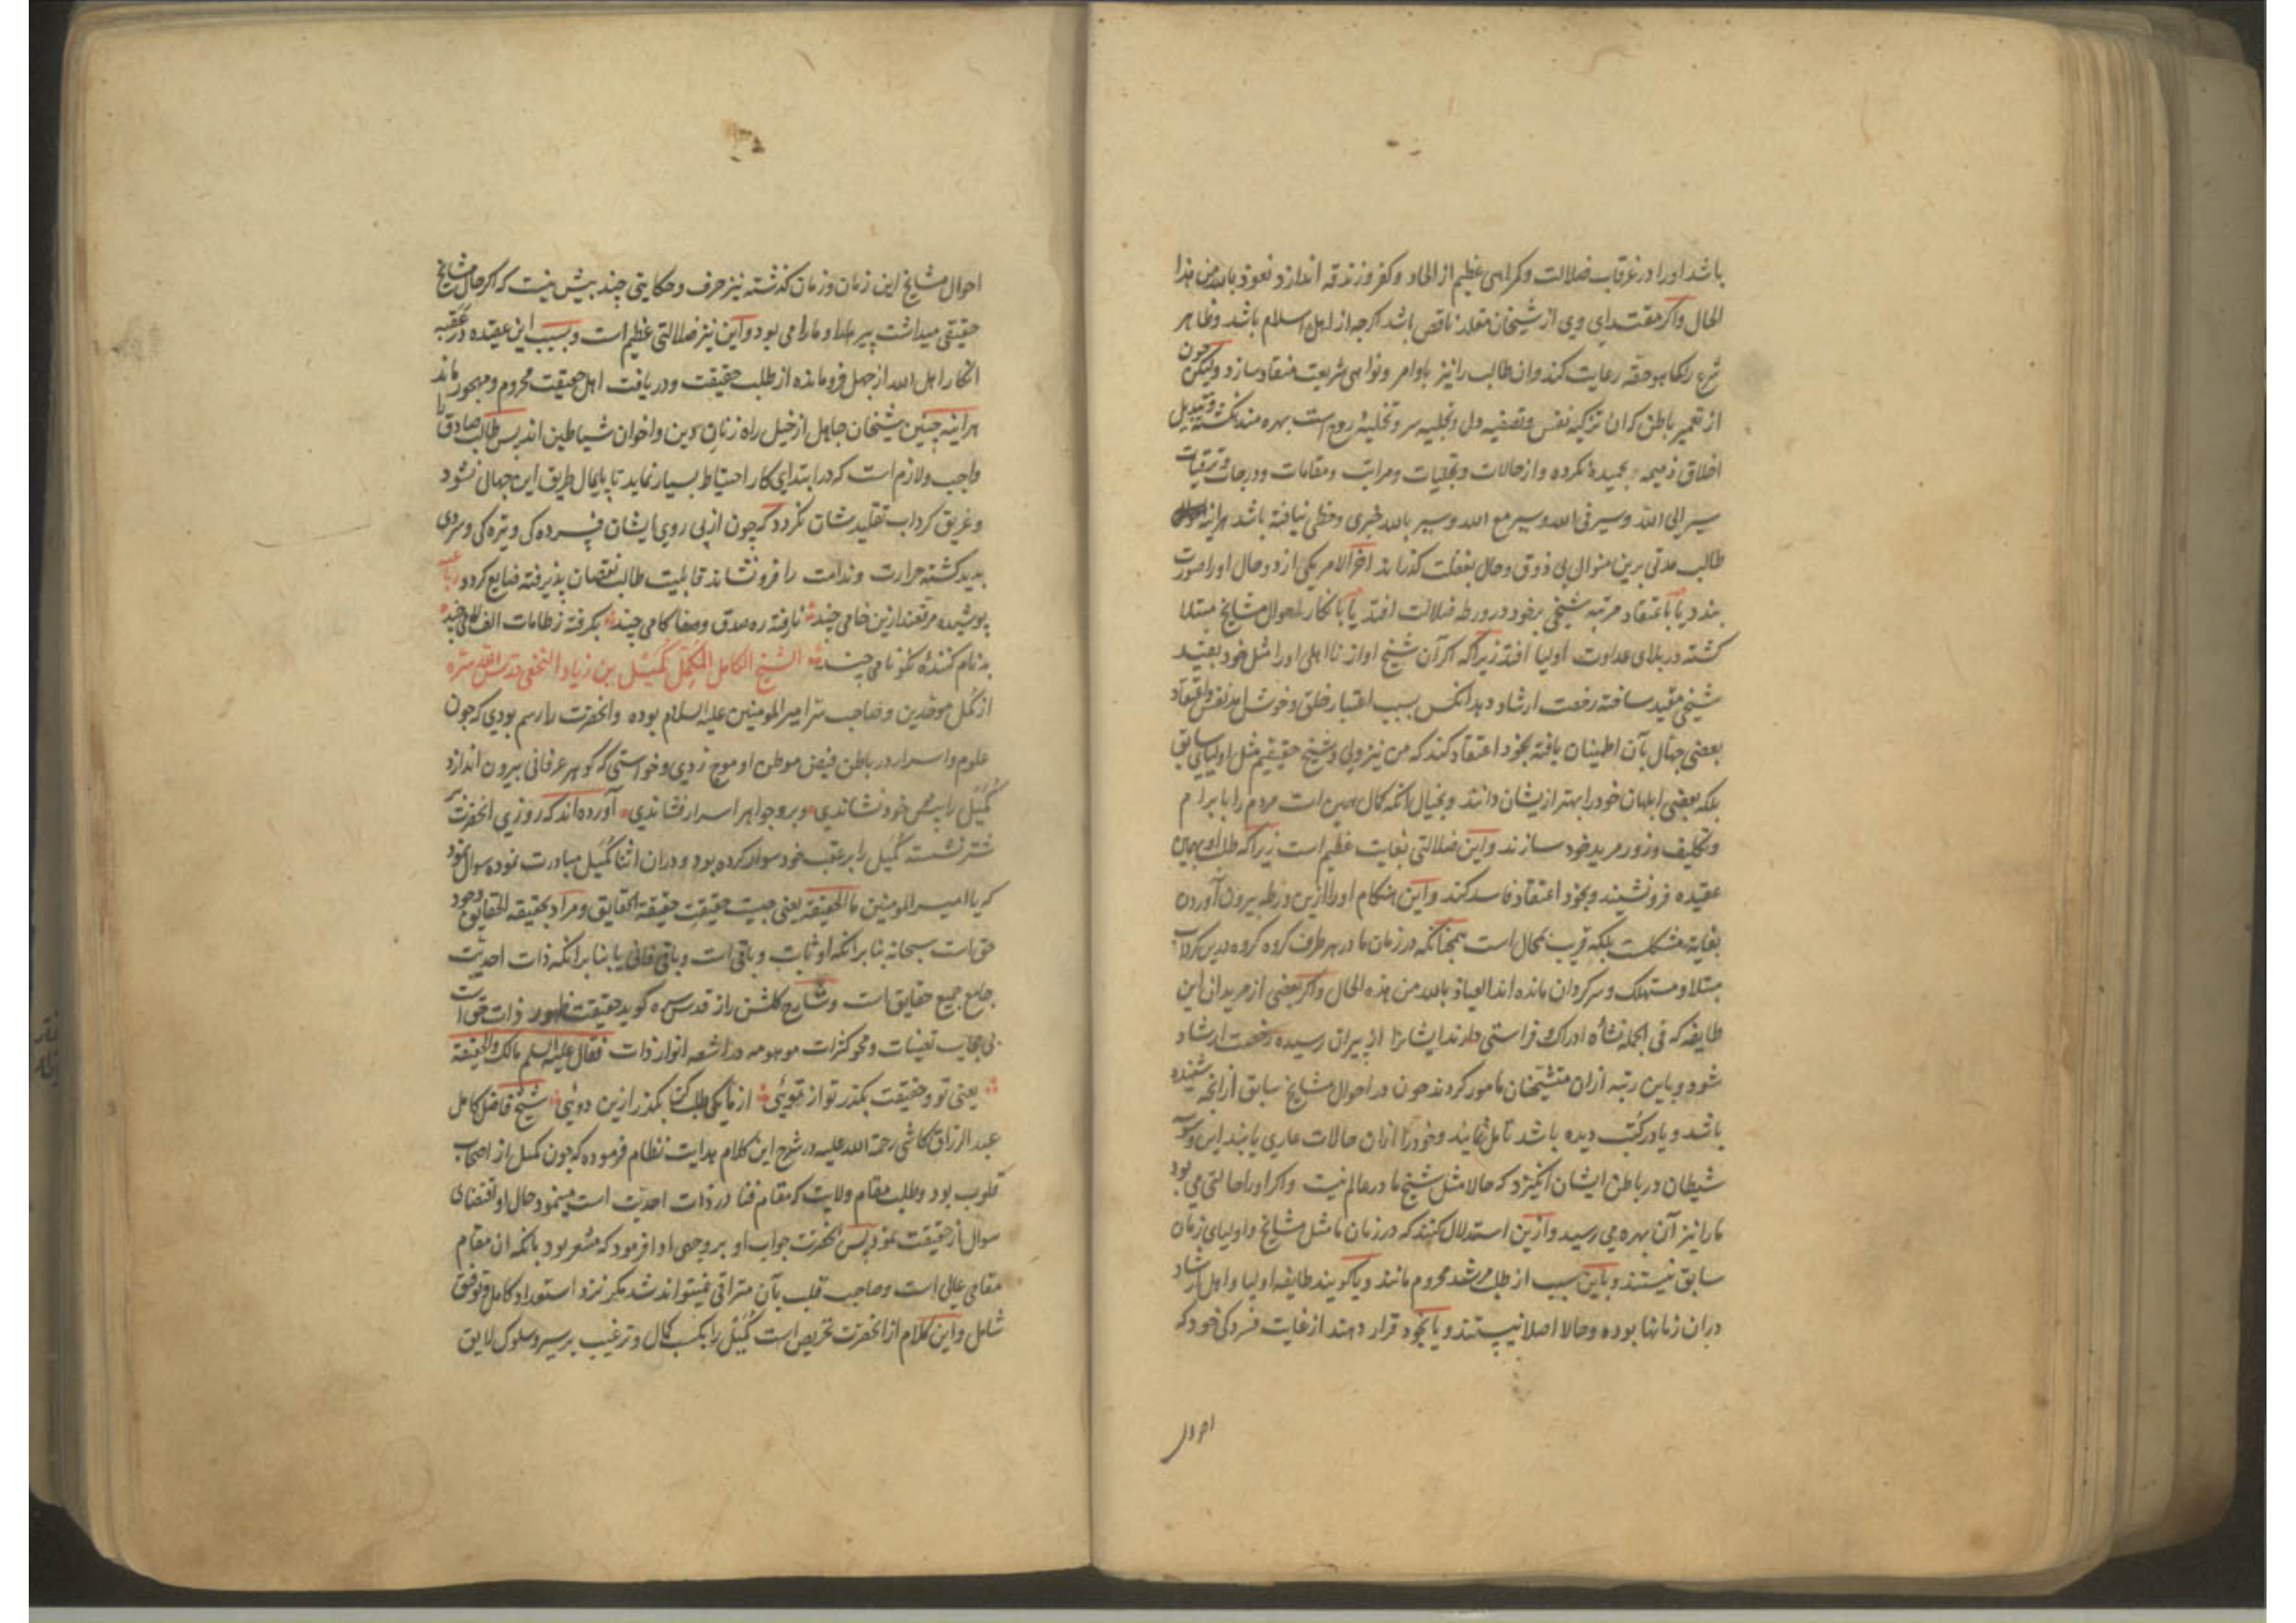 باشد اورا در غرقاب ضلالت وکمراهی عظیم از الحاد وکفر وزندقه اندازد نعوذ بالله من هذا
الحال واکر مقتدای وی از شیخان مقلد ناقص باشد اکرچه از اهل اسلام باشد وظاهر
شرع راکما هو حقه رعایت کند وان طالب رانیز باوامر ونواهی شریعت منقاد سازد ولیکن چون
از تعمیر باطن که ان تزکیه نفس وتصفیه دل وتجلیه سر وتخلیه روح است بهره مند نکشته وتبدیل
اخلاق ذمیمه بحمیده نکرده واز حالات وتجلیات ومراتب ومقامات ودرجات وترقیات
سیر الی الله وسیر فی الله وسیر مع الله وسیر بالله خبری وحظی نیافته باشد هراینه
طالب مدتی برین منوال بی ذوق وحال بغفلت کذراند اخر الامر یکی از دو حال اورا صورت
بندد یا باعتقاد مرتبه شیخی بخود در ورطه ضلالت افتد یا بانکار احوال مشایخ مبتلا
کشته در بلای عداوت اولیا افتد زیراکه اکر آن شیخ اواز نااهلی اورا مثل خود بقید
شیخی مقید ساخته رخصت ارشاد دهد انکس بسبب اعتبار خلق وخوش امد نفس واعتقاد
بعضی جهال بآن اطینان یافته بخود اعتقاد کند که من نیز ولی وشیخ حقیقیم مثل اولیای سابق
بلکه بعضی ابلهان خودرا بهتر ازیشان دانند وبخیال انکه کمال همین است مردم را بابرام
وتکلیف وزور مرید خود سازند واین ضلالتی بغایت عظیم است زیراکه طلب او بهمین
عقیده فرونشیند وبخود اعتقاد فاسد کند واین هنکام اورا ازین ورطه بیرون آوردن
بغایة مشکلست بلکه قریب بمحال است همچنانکه در زمان ما در هر طرف کروه کروه درین کرداب
مبتلا ومستهلک وسرکردان مانده اند العیاذ بالله من هذه الحال واکر بعضی از مریدان این
طایفه که فی الجمله نشأه ادراک وفراستی دارند ایشانرا از پیران رسیده رخصت ارشاد
شود وباین رتبه ازان متشیخان مامور کردند چون در احوال مشایخ سابق ازانچه شنیده
باشد ویا در کتب دیده باشد تامل نمایند وخودرا ازان حالات عاری یابند این وسوسه
شیطان در باطن ایشان انکیزد که حالا مثل شیخ ما در عالم نیست واکر اورا حالتی می بود
مارا نیز آن بهره می رسید وازین استدلال کنند که در زمان ما مثل مشایخ واولیای زمان
سابق نیستند وباین سبب از طلب مرشد محروم مانند ویا کویند طایفه اولیا واهل ارشاد
دران زمانها بوده وحالا اصلا نیستند ویا بخود قرار دهند از غایت فسردکی خود که
احوال
احوال مشایخ این زمان وزمان کذشته نیز حرف وحکایتی چند بیش نیست که اکر حال مشایخ
حقیقی میداشت پیر مارا ومارا می بود واین نیز ضلالتی عظیم است وبسبب این عقیده در عقبه
انکار اهل الله از جهل فرومانده از طلب حقیقت ودریافت اهل حقیقت محروم ومهجور ماند
هراینه چنین شیخان جاهل از خیل راه زنان دین واخوان شیاطین اند پس طالب صادق را
واجب ولازم است که در ابتدای کار احتیاط بسیار نماید تا پایمال طریق این جهال نشود
وغریق کرداب تقلید شان نکردد که چون از پی روی ایشان فسرده کی وتیره کی وسردی
پدید کشته حرارت وندامت را فرونشاند قابلیت طالب نقصان پذیرفته ضایع کردد رباعیه
پوشیده مرقعند ازین خامی چند نارفته ره صدق وصفا کامی چند بکرفته ز طامات الف لامی چند
بدنام کننده نکونامی چند الشیخ الکامل المکمل کمیل بن زیاد النخعی قدس الله سره
از کمل موحدین وصاحب سر امیر المومنین علیه السلام بوده وانحضرت را رسم بودی که چون
علوم واسرار در باطن فیض موطن او موج زدی وخواستی که کوهر عرفانی بیرون اندازد
کمیل را پیش خود نشاندی وبرو جواهر اسرار فشاندی آورده اند که روزی انحضرت بر
شتر نشسته کمیل را بر عقب خود سوار کرده بود ودران اثنا کمیل مبادرت نموده سوال نمود
که یا امیر المومنین ما الحقیقة یعنی چیست حقیقت حقیقة الحقایق ومراد بحقیقه الحقایق وجود
حق است سبحانه بنا برانکه او ثابت وباقی است وباقی فانی یا بنا برانکه ذات احدیت
جامع جمیع حقایق است وشارح کلشن راز قدس سره کوید حقیقت ظهور ذات حق است
بی حجاب تعینات ومحو کثرات موهومه در اشعه انوار ذات فقال علیه السلم مالک والحقیقة
یعنی تو وحقیقت بکذر تو از تویئی از ما یکی طلب کن بکذر ازین دوئی شیخ فاضل کامل
عبد الرزاق کاشی رحمة الله علیه در شرح این کلام هدایت نظام فرموده که چون کمیل از اصحاب
قلوب بود وطلب مقام ولایت که مقام فنا در ذات احدیت است مینمود حال او اقتضای
سوال از حقیقت نمود پس انحضرت جواب او بر وجهی ادا فرمود که مشعر بود بانکه ان مقام
مقامی عالی است وصاحب قلب بآن مترقی نمیتواند شد مکر نزد استعداد کامل وتوفیق
شامل واین کلام از انحضرت تحریص است کمیل را بکسب کمال وترغیب بر سیر وسلوک لایق